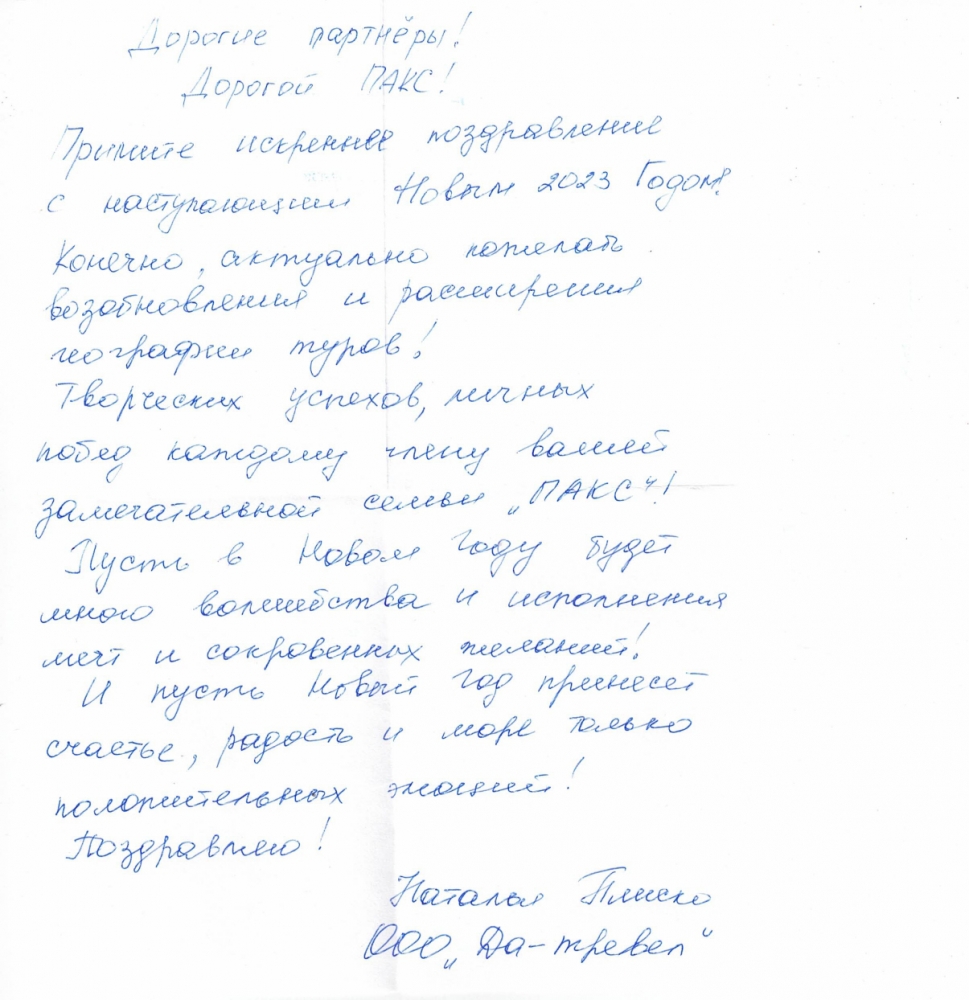 Дорогие партнёры!
Дорогой ПАКС!
Примите искреннее поздравление
с наступающим Новым 2023 Годом!
Конечно, актуально пожелать
возобновления и расширения
географии туров!
Творческих успехов, личных
побед каждому члену вашей
замечательной семьи „ПАКС“!
Пусть в Новом Году будет
много волшебства и исполнения
мечт и сокровенных желаний!
И пусть Новый Год принесет
счастье, радость и море только
положительных эмоций!
Поздравляю!
Наталья Плиско
ООО „Да-тревел“